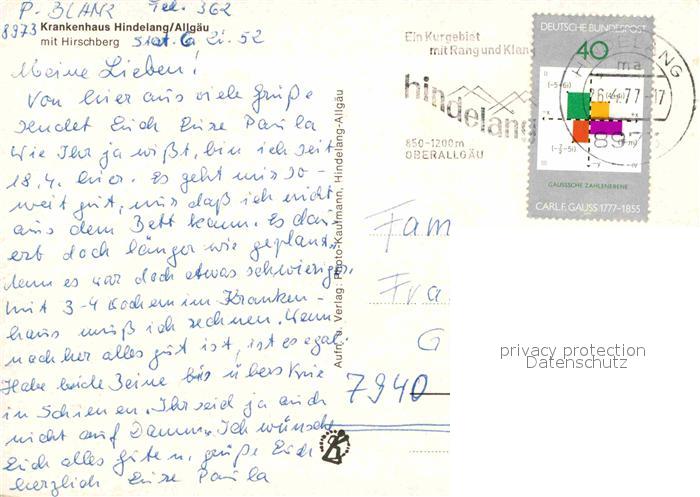 P. BLANZ Tel. 362
8973 Krankenhaus Hindelang/Allgäu
mit Hirschberg Stat. 6 Zi. 52
Meine Lieben!
Von hier aus viele Grüße
sendet Euch Eure Paula
Wie Ihr ja wißt, bin ich seit
18.4. hier. Es geht mir so-
weit gut, nur daß ich nicht
aus dem Bett kann. Es dau-
ert doch länger wie geplant,
denn es war doch etwas schwieriger.
Mit 3-4 Wochen im Kranken-
haus muß ich rechnen. Wenn
nachher alles gut ist, ist es egal.
Habe beide Beine bis übers Knie
in Schienen. Ihr seid ja auch
nicht auf Damm. Ich wünsche
Euch alles gute u. grüße Euch
herzlich Eure Paula
Aufn. u. Verlag: Photo-Kaufmann, Hindelang-Allgäu
Ein Kurgebiet
mit Rang und Klan
hindelang
850-1200m
OBERALLGÄU
HINDELANG
ma
26.4.77-17
8973
DEUTSCHE BUNDESPOST
40
(-5+6i)
GAUSSSCHE ZAHLENEBENE
CARL F. GAUSS 1777-1855
Fam
Fra
G
7940
privacy protection
Datenschutz